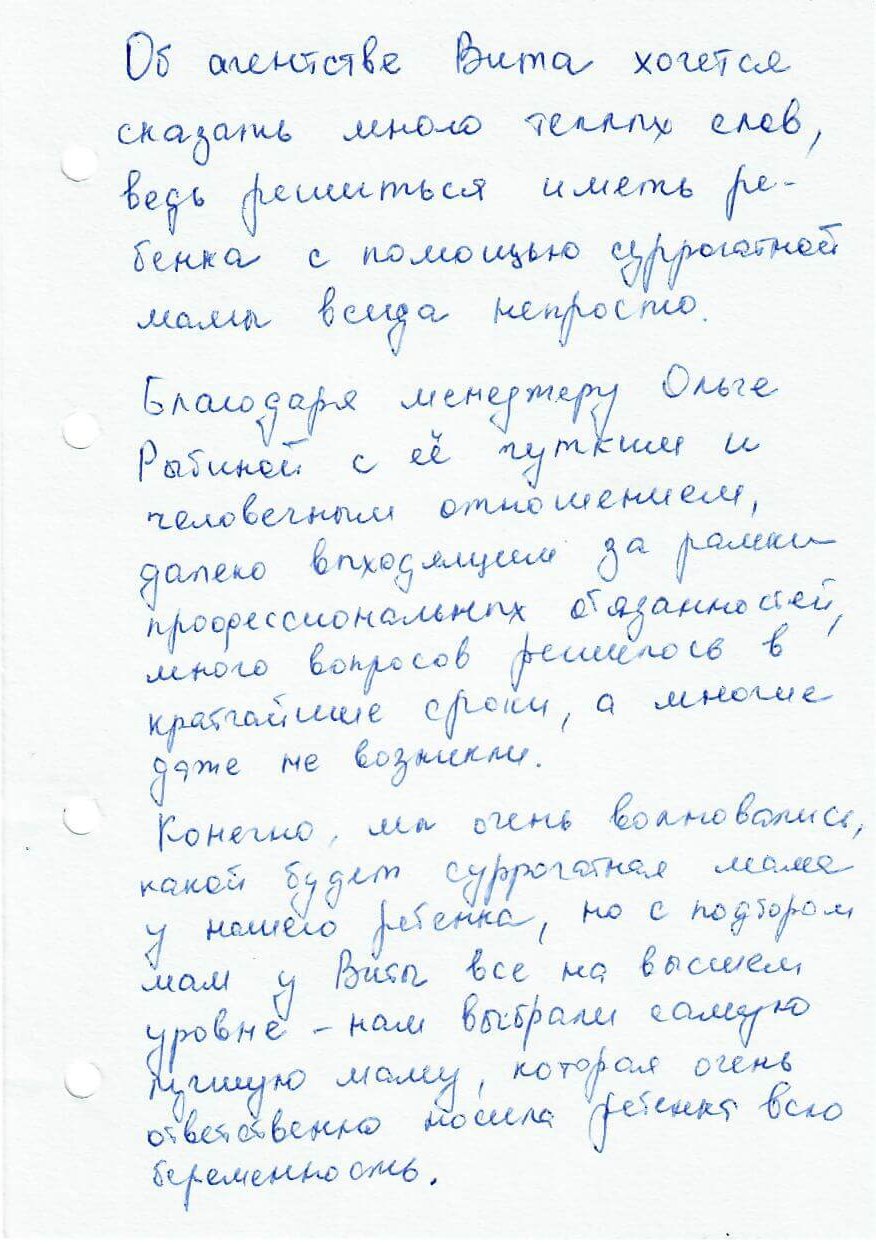 Об агентстве Вита хочется
сказать много теплых слов,
ведь решиться иметь ре-
бенка с помощью суррогатной
мамы всегда непросто.
Благодаря менеджеру Ольге
Рыбиной с её чутким и
человечным отношением,
далеко выходящим за рамки
профессиональных обязанностей,
много вопросов решилось в
кратчайшие сроки, а многие
даже не возникли.
Конечно, мы очень волновались,
какой будет суррогатная мама
у нашего ребенка, но с подбором
мам у Виты все на высшем
уровне – нам выбрали самую
лучшую маму, которая очень
ответственно носила ребенка всю
беременность.